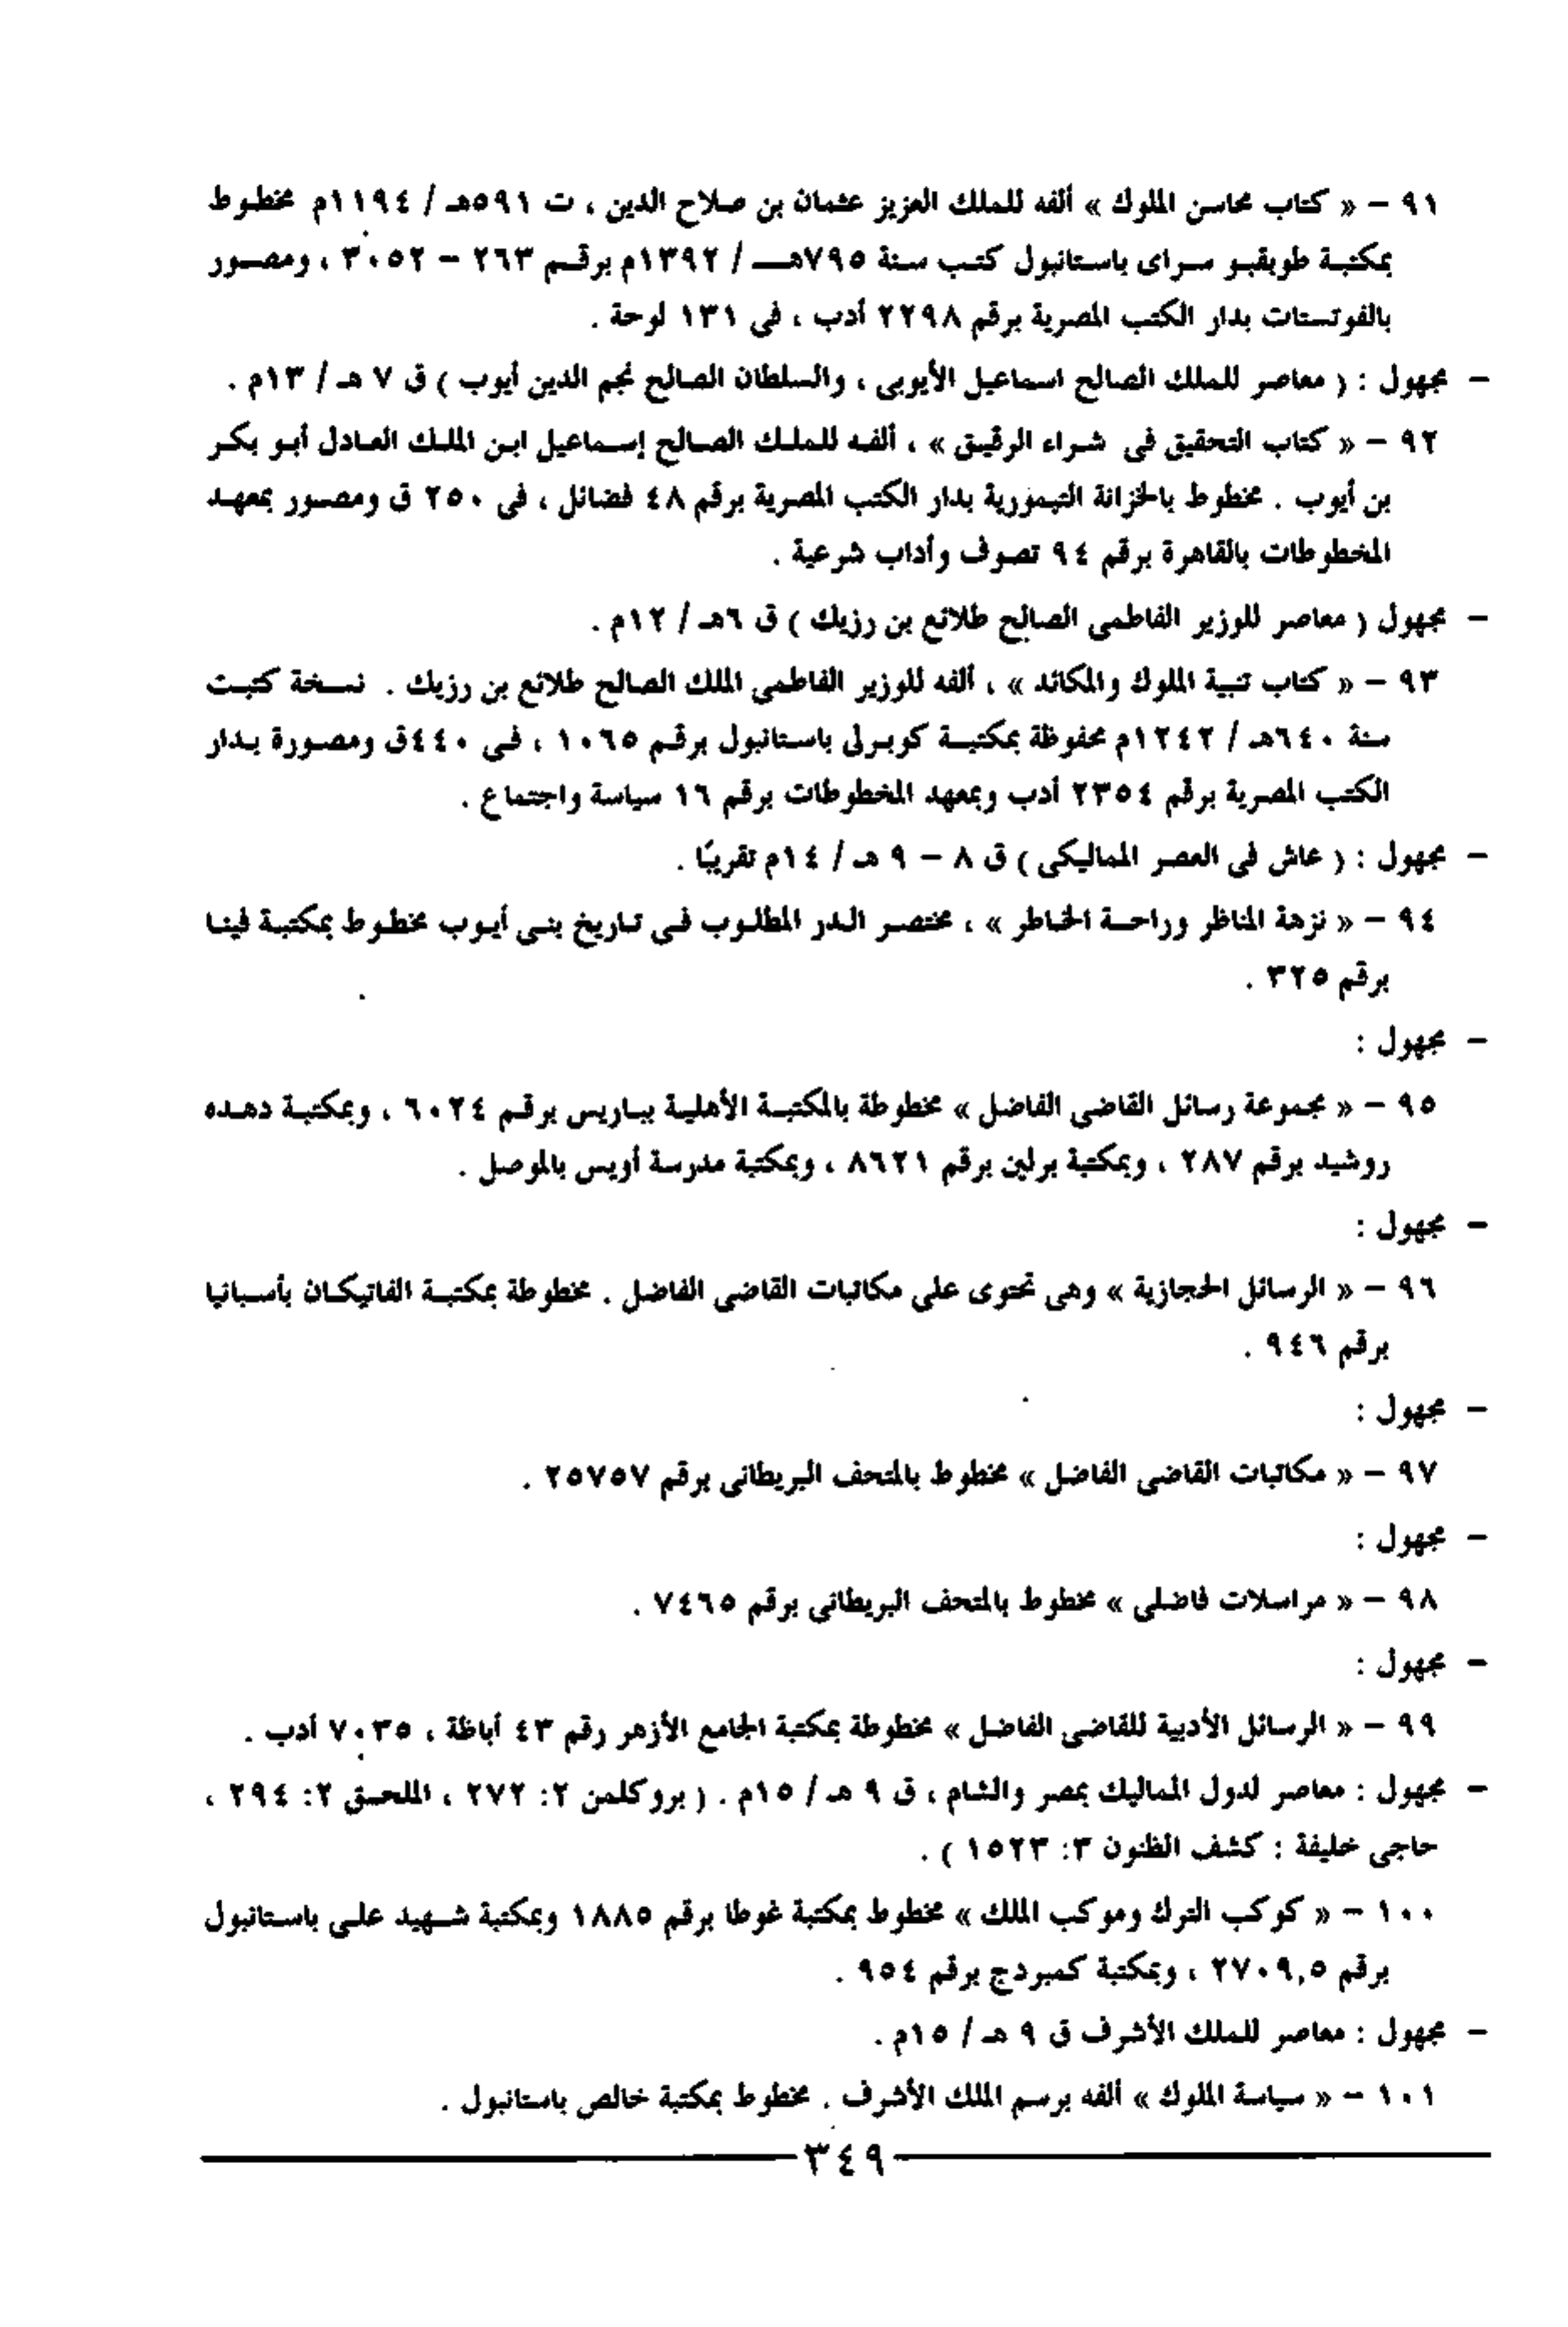 ٩١ – « كتاب محاسن الملوك » ألفه للملك العزيز عثمان بن صلاح الدين ، ت ٥٩١هـ / ١١٩٤م مخطوط
بمكتبة طوبقبو سراى باستانبول كتب سنة ٧٩٥هـ / ١٣٩٢م برقم ٢٦٣ – ٣٠٥٢ ، ومصور
بالفوتستات بدار الكتب المصرية برقم ٢٢٩٨ أدب ، فى ١٣١ لوحة .
– مجهول : ( معاصر للملك الصالح اسماعيل الأيوبى ، والسلطان الصالح نجم الدين أيوب ) ق ٧ هـ / ١٣م .
٩٢ – « كتاب التحقيق فى شراء الرقيق » ، ألفه للملك الصالح إسماعيل ابن الملك العادل أبو بكر
بن أيوب . مخطوط بالخزانة التيمورية بدار الكتب المصرية برقم ٤٨ فضائل ، فى ٢٥٠ ق ومصور بمعهد
المخطوطات بالقاهرة برقم ٩٤ تصوف وأداب شرعية .
– مجهول ( معاصر للوزير الفاطمى الصالح طلائع بن رزيك ) ق ٦هـ / ١٢م .
٩٣ – « كتاب تنبية الملوك والمكائد » ، ألفه للوزير الفاطمى الملك الصالح طلائع بن رزيك . نسخة كتبت
سنة ٦٤٠هـ / ١٢٤٢م محفوظة بمكتبة كوبرلى باستانبول برقم ١٠٦٥ ، فى ٤٤٠ق ومصورة بدار
الكتب المصرية برقم ٢٣٥٤ أدب وبمعهد المخطوطات برقم ١٦ سياسة واجتماع .
– مجهول : ( عاش فى العصر المماليكى ) ق ٨ – ٩ هـ / ١٤م تقريبًا .
٩٤ – « نزهة المناظر وراحة الخاطر » ، مختصر الدر المطلوب فى تاريخ بنى أيوب مخطوط بمكتبة فينا
برقم ٣٢٥ .
– مجهول :
٩٥ – « مجموعة رسائل القاضى الفاضل » مخطوطة بالمكتبة الأهلية بباريس برقم ٦٠٢٤ ، وبمكتبة دهده
روشيد برقم ٢٨٧ ، وبمكتبة برلين برقم ٨٦٢١ ، وبمكتبة مدرسة أويس بالموصل .
– مجهول :
٩٦ – « الرسائل الحجازية » وهى تحتوى على مكاتبات القاضى الفاضل . مخطوطة بمكتبة الفاتيكان بأسبانيا
برقم ٩٤٦ .
– مجهول :
٩٧ – « مكاتبات القاضى الفاضل » مخطوط بالمتحف البريطانى برقم ٢٥٧٥٧ .
– مجهول :
٩٨ – « مراسلات فاضلى » مخطوط بالمتحف البريطانى برقم ٧٤٦٥ .
– مجهول :
٩٩ – « الرسائل الأدبية للقاضى الفاضل » مخطوطة بمكتبة الجامع الأزهر رقم ٤٣ أباظة ، ٧٠٣٥ أدب .
– مجهول : معاصر لدول المماليك بمصر والشام ، ق ٩ هـ / ١٥م . ( بروكلمن ٢: ٢٧٢ ، الملحق ٢: ٢٩٤ ،
حاجى خليفة : كشف الظنون ٣: ١٥٢٣ ) .
١٠٠ – « كوكب الترك وموكب الملك » مخطوط بمكتبة غوطا برقم ١٨٨٥ وبمكتبة شهيد على باستانبول
برقم ٢٧٠٩,٥ ، وبمكتبة كمبردج برقم ٩٥٤ .
– مجهول : معاصر للملك الأشرف ق ٩ هـ / ١٥م .
١٠١ – « سياسة الملوك » ألفه برسم الملك الأشرف . مخطوط بمكتبة خالص باستانبول .
٣٤٩